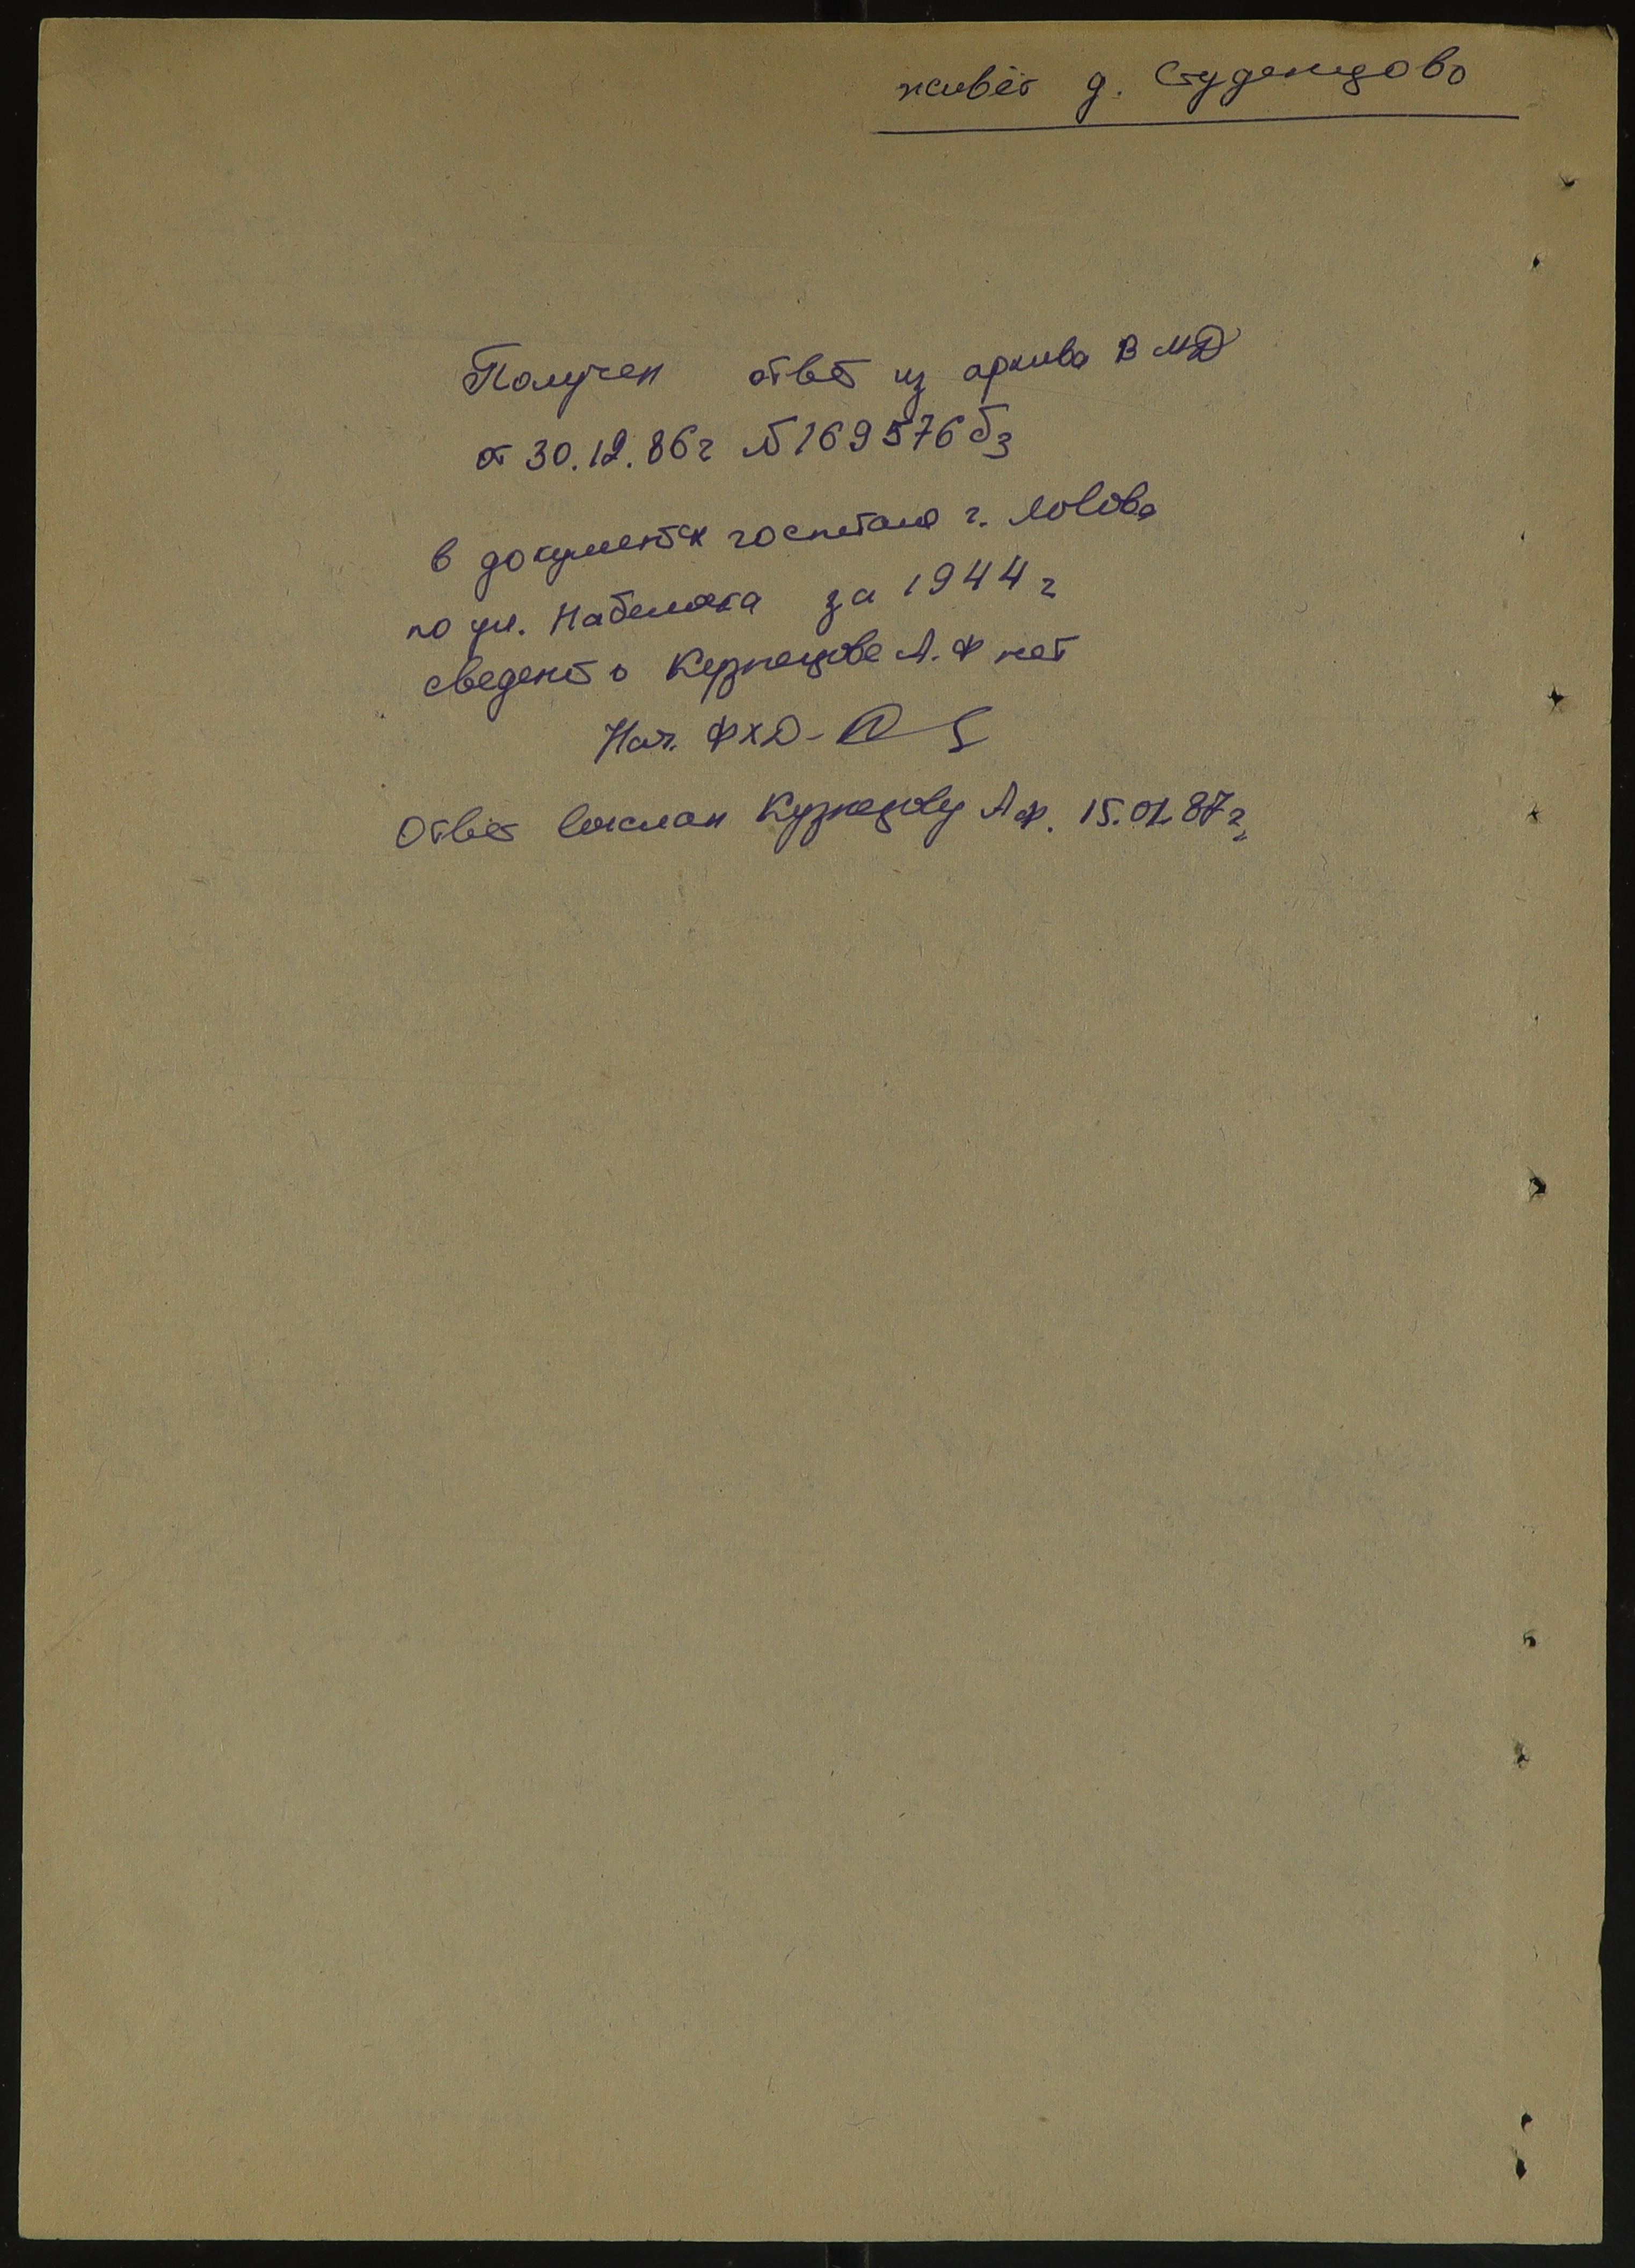 живёт д. Студенцово
Получен ответ из архива ВМД
от 30.12.86г №169576 бз
в документах госпиталя г. Львова
по ул. Набеляка за 1944 г
сведений о Кузнецове А.Ф нет
Нач. ФХД-
Ответ выслан Кузнецову А.Ф. 15.01.87г.